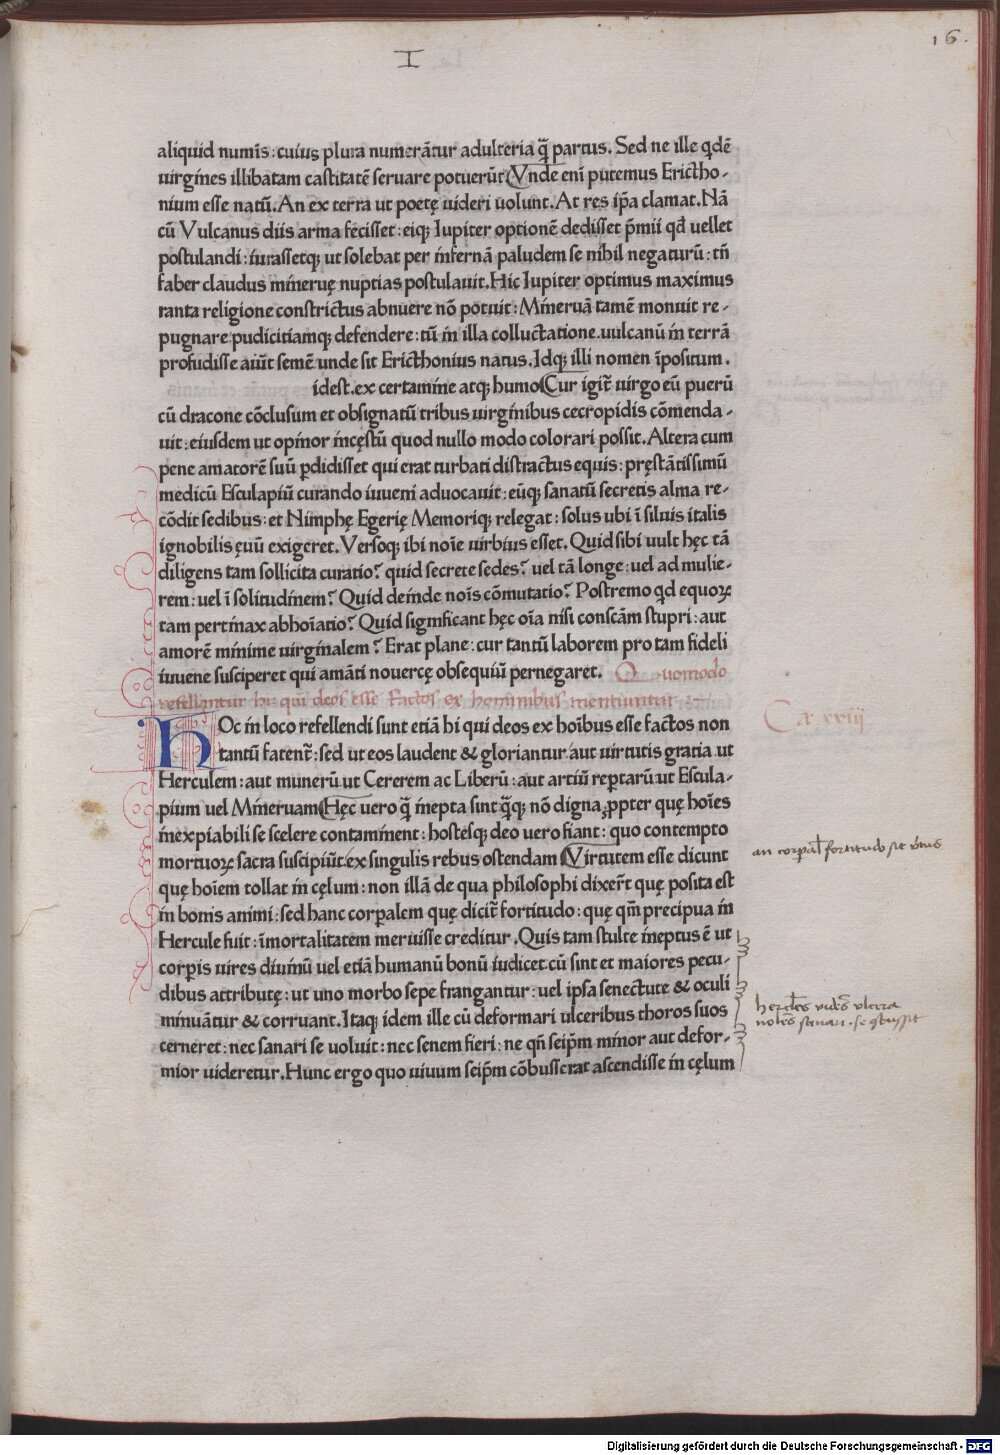 I
16.
aliquid numīs: cuius plura numerātur adulteria q̄ partus. Sed ne ille qdē
uirgines illibatam castitatē seruare potuerūt Vnde eni putemus Erictho-
nium esse natū. An ex terra ut poetę uideri uolunt. At res ip̄a clamat. Nā
cū Vulcanus diis arma fecisset: eiq; Iupiter optionē dedisset p̄mii qd uellet
postulandi: iurassetq; ut solebat per infernā paludem se nihil negaturū: tn̄
faber claudus mineruę nuptias postulauit. Hic Iupiter optimus maximus
tanta religione constrictus abnuere nō potuit: Mineruā tamē monuit re-
pugnare: pudicitiamq; defendere: tū in illa colluctatione. uulcanū in terrā
profudisse aiūt semē unde sit Ericthonius natus. Idq; illi nomen īpositum.
idest. ex certamine atq; humo Cur igit̄ uirgo eū puerū
cū dracone cōclusum et obsignatū tribus uirginibus cecropidis cōmenda-
uit: eiusdem ut opinor incęstū quod nullo modo colorari possit. Altera cum
pene amatorē suū perdidisset qui erat turbati distractus equis: pręstātissimū
medicū Esculapiū curando iuueni aduocauit: eūq; sanatū secretis alma re-
cōdit sedibus: et Nimphę Egerię Memoriq; relegat: solus ubi ī siluis italis
ignobilis ęuū exigeret. Versoq; ibi noīe uirbius esset. Quid sibi uult hęc tā
diligens tam sollicita curatio? quid secrete sedes? uel tā longe: uel ad mulie-
rem: uel ī solitudinem? Quid deinde noīs cōmutatio? Postremo qd equoꝝ
tam pertinax abhoīatio? Quid significant hęc oīa nisi conscām stupri: aut
amorē minime uirginalem? Erat plane: cur tantū laborem pro tam fideli
iuuene susciperet qui amāti nouercę obsequiū pernegaret. Quomodo
refellantur hi: qui deos esse factos ex hominibus mentiuntur
Ca xxiii
HOc in loco refellendi sunt etiā hi qui deos ex hoībus esse factos non
tantū fatent̄: sed ut eos laudent & gloriantur aut uirtutis gratia ut
Herculem: aut munerū ut Cererem ac Liberū: aut artiū reptarū ut Escula-
pium uel Mineruam Hęc uero q̄ inepta sint q̄q; nō digna ꝓpter quę hoīes
inexpiabili se scelere contaminent: hostesq; deo uero fiant: quo contempto
mortuoꝝ sacra suscipiūt ex singulis rebus ostendam Virtutem esse dicunt
quę hoīem tollat in cęlum: non illā de qua philosophi dixer̄t quę posita est
in bonis animi: sed hanc corpalem quę dicit̄ fortitudo: quę qm̄ precipua in
Hercule fuit: īmortalitatem meruisse creditur. Quis tam stulte ineptus ē ut
corpis uires diuinū uel etiā humanū bonū iudicet cū sint et maiores pecu-
dibus attributę: ut uno morbo sepe frangantur: uel ipsa senectute & oculi
minuātur & corruant. Itaq; idem ille cū deformari ulceribus thoros suos
cerneret: nec sanari se uoluit: nec senem fieri: ne qn̄ seip̄m minor aut defor-
mior uideretur. Hunc ergo quo uiuum seip̄m cōbusserat ascendisse in cęlum
an corpal' fortitudo sit v̄tus
hercl̄es vidēs vlcera
nolēs sanari. se
Digitalisierung gefördert durch die Deutsche Forschungsgemeinschaft - DFG